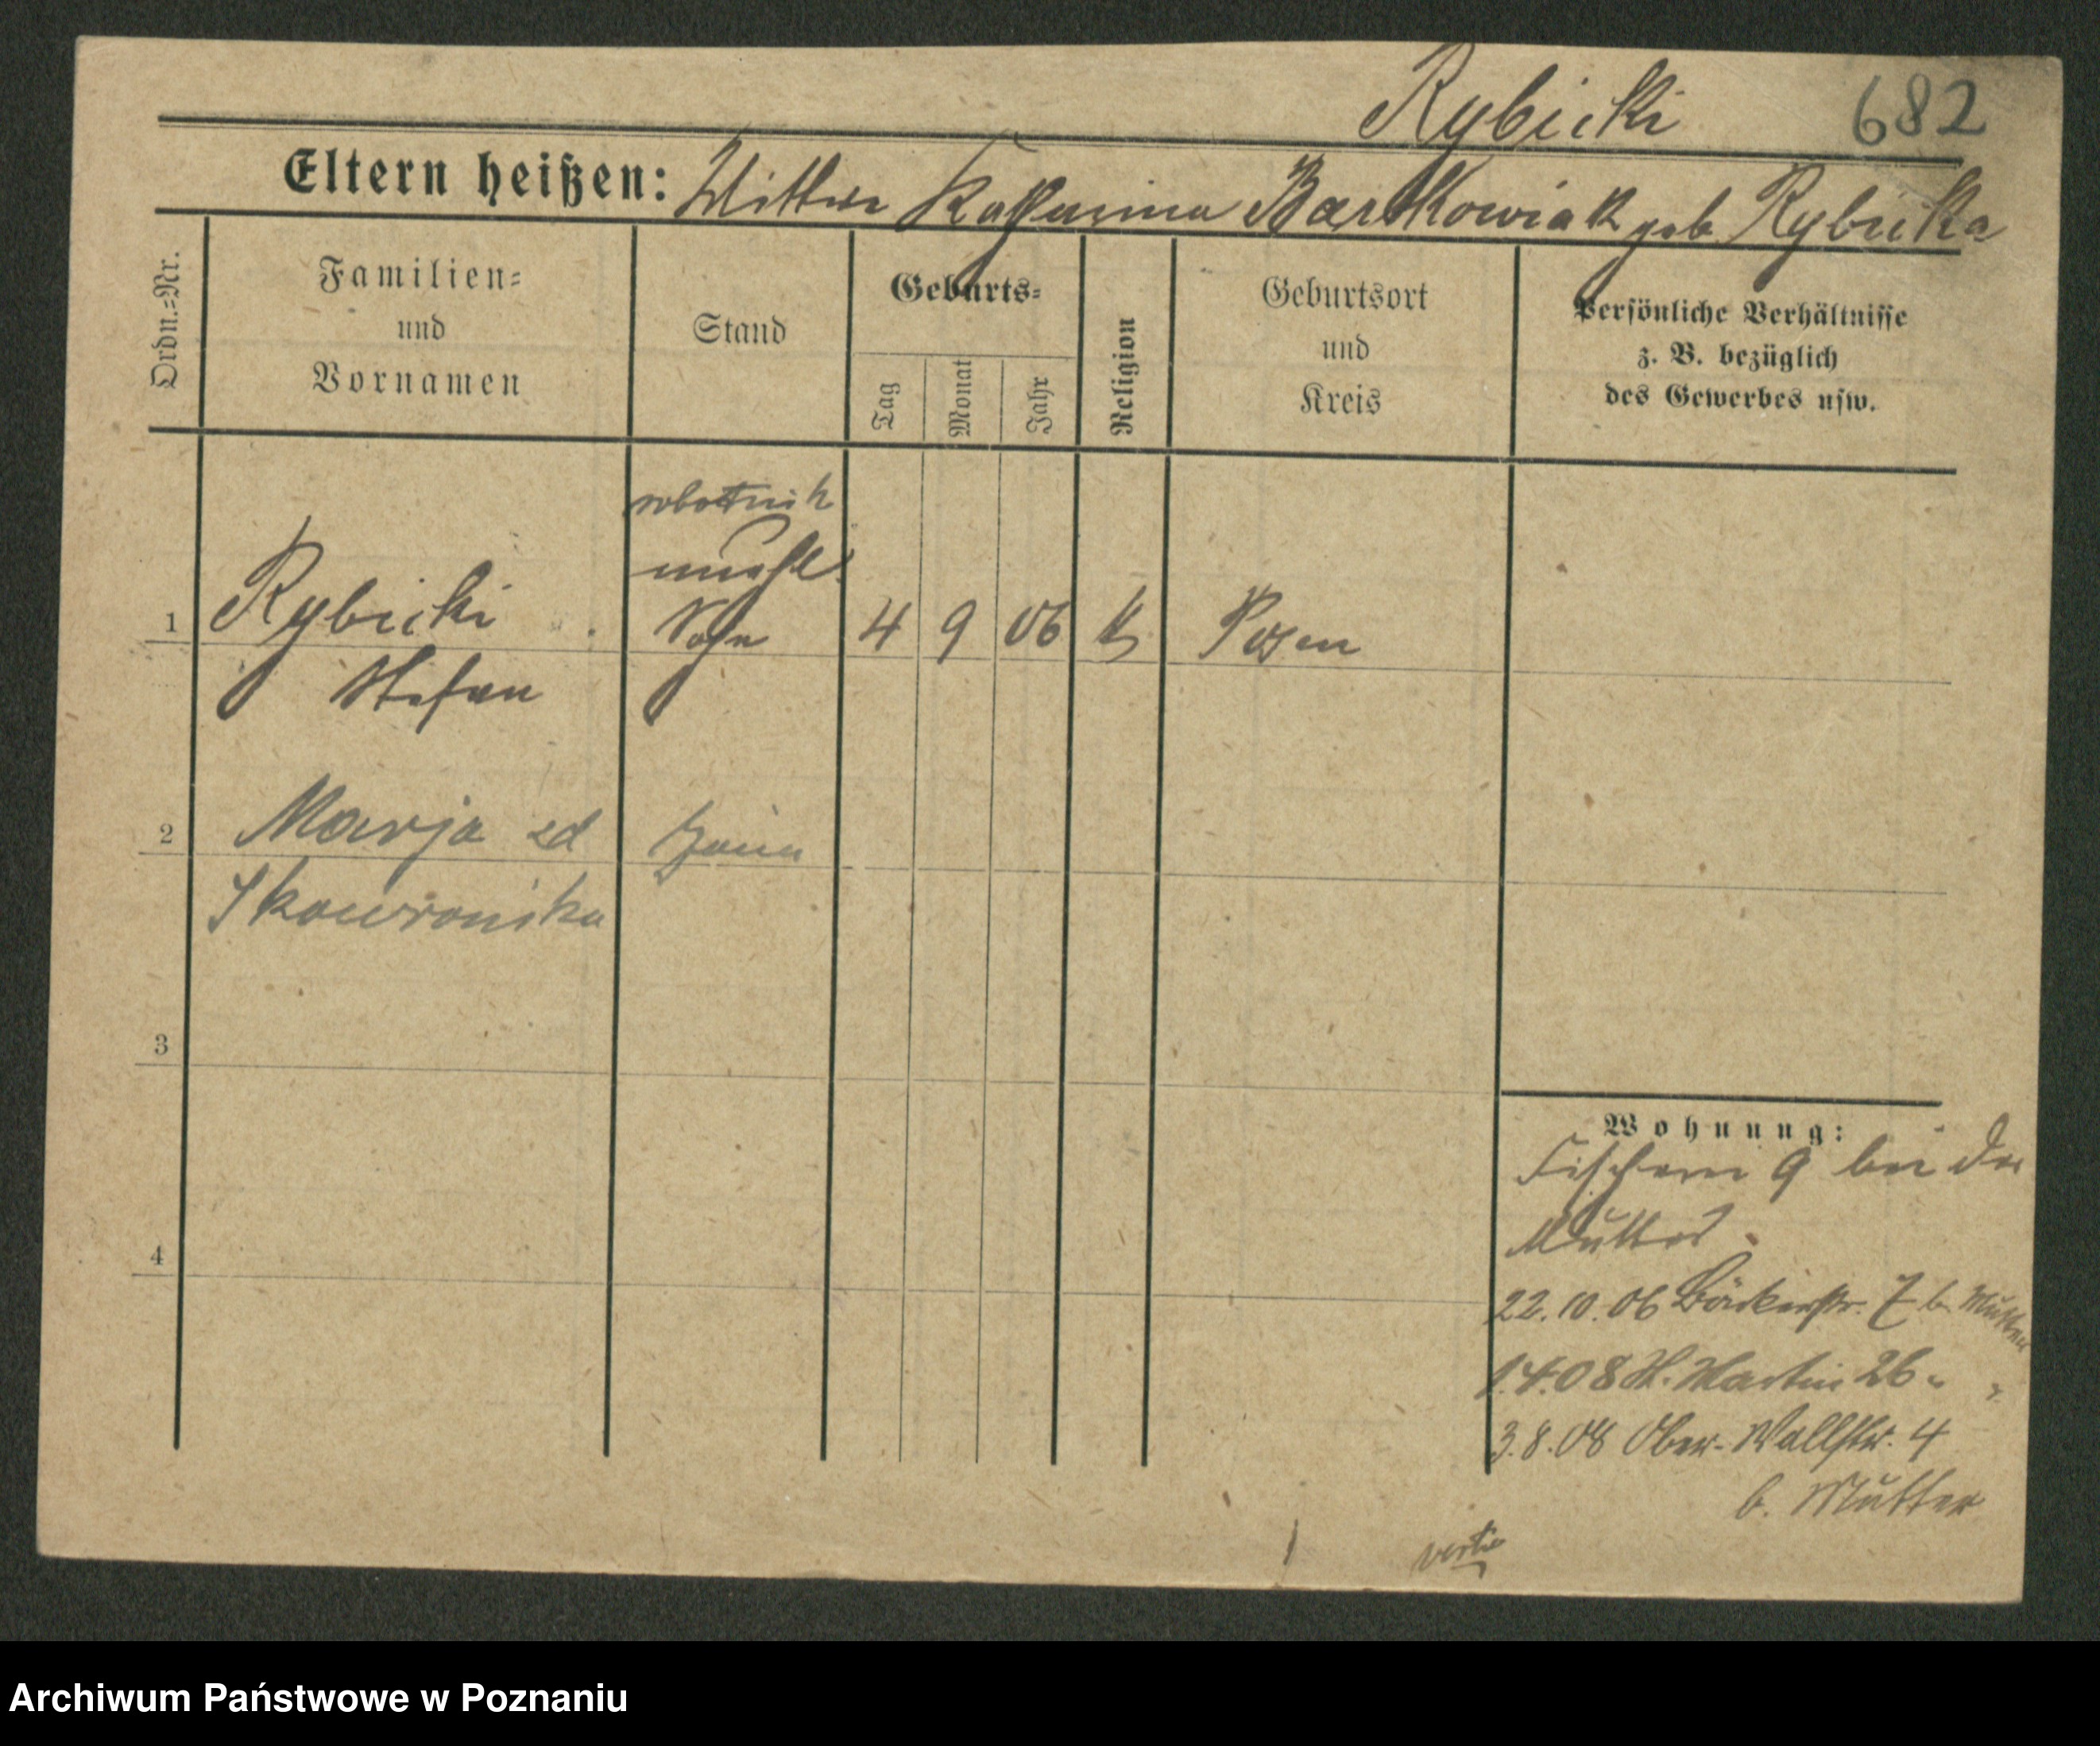 Rybicki 682
Eltern heißen: Wittwe Katharina Bartkowiak geb Rybicka
Ordn.=Nr.
Familien=
und
Vornamen
Stand
Geburts=
Tag
Monat
Jahr
Religion
Geburtsort
und
Kreis
Persönliche Verhältnisse
z. B. bezüglich
des Gewerbes usw.
robotnik
unehl.
1 Rybicki Sohn 4 9 06 k Posen
Stefan
2 Marja zd żona
Skowrońska
3
4
Wohnung:
Fischerei 9 bei der
Mutter.
22.10.06 Bäckerstr. 7 b. Mutter
1.4.08 St. Martin 26 " "
3.8.08 Ober-Wallstr. 4
b. Mutter
Archiwum Państwowe w Poznaniu